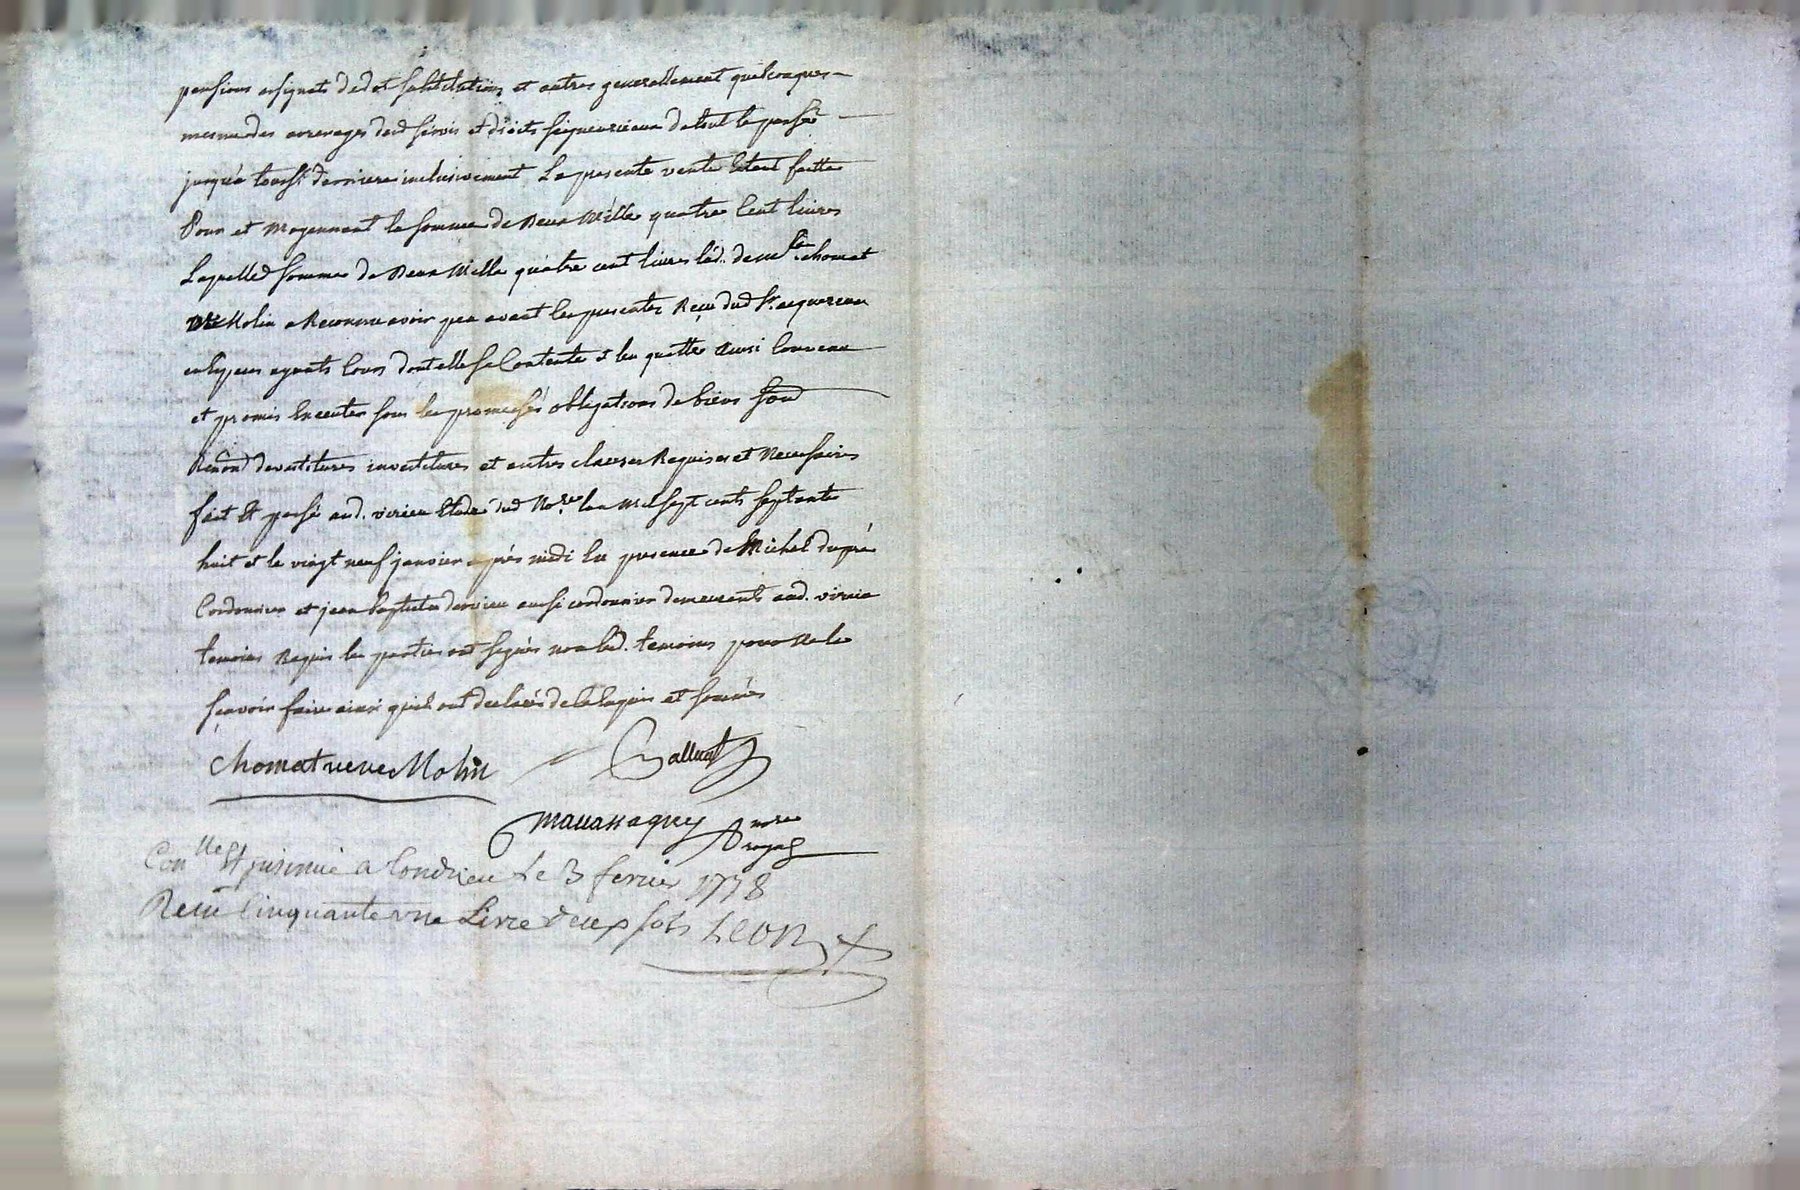 pensions assignats de dot substitutions et autres generallement quelconques
mesme des arrerages desd servis et droits seigneuriaux de tout le passé
jusqu'a toussts derniere inclusivement La presente vente Etant faitte
Pour et Moyennant la somme de Deux Mille quatre Cent livres
Laquelled somme de Deux Mille quatre cent livres lad. dem chomat
Molin a Reconnu avoir peu avant les presentes Recu dud Sr. acquereur
en Especes ayants Cours dont elle se Contente & len quitte Ainsi Convenu
et promis Executer sous les promesses obligations de biens
devestitures investitures et autres clauses Requises et Necessaires
fait Et passé aud. virieu Etude dud Nore. lan Mil sept cents septante
huit & le vingt neuf janvier après midi En presence de Michel dupré
Cordonnier et jean baptiste dervieu aussi cordonnier demeurants aud. virieu
temoins Requis les parties ont signés non led. temoins pour ne le
sçavoir faire ainsi quils ont declarés de ce Enquis et sommés
chomat veuve Molin
Mavassaguy nore Royal
Conlle Et jnsinué a Condrieu Le 3 fevrier 1778
Recu Cinquante une Livre deux sols LEON